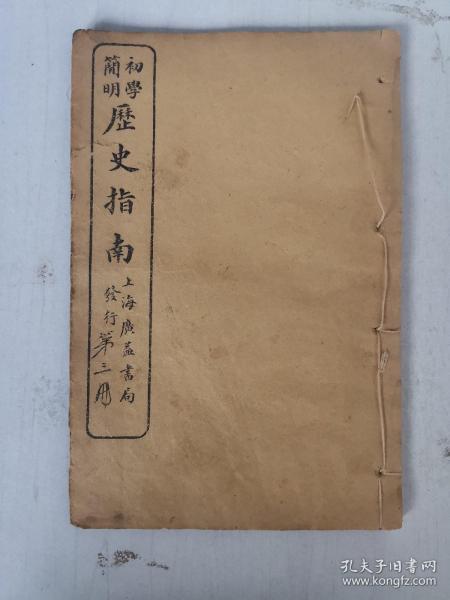 初學
簡明
歷史指南
上海廣益書局
發行
第三冊
孔夫子旧书网
www.kongfz.com